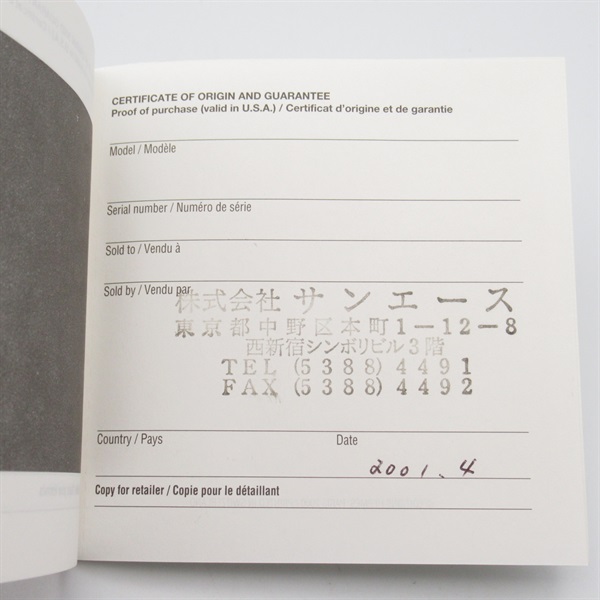 CERTIFICATE OF ORIGIN AND GUARANTEE
Proof of purchase (valid in U.S.A.) / Certificat d'origine et de garantie
Model / Modèle
Serial number / Numéro de série
Sold to / Vendu à
Sold by / Vendu par
株式会社 サンエース
東京都中野区本町1-12-8
西新宿シンボリビル3階
TEL (5388) 4491
FAX (5388) 4492
Country / Pays Date
2001.4
Copy for retailer / Copie pour le détaillant